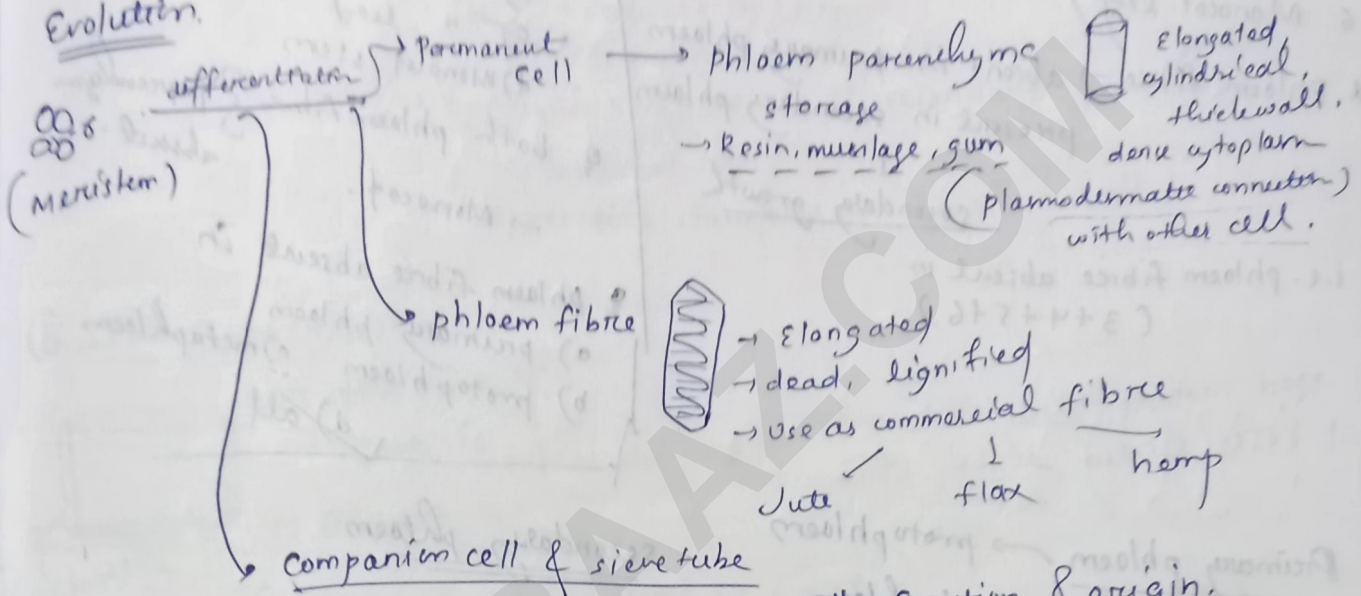 Evolution
differentiation
Permanent
cell
(Meristem)
phloem parenchyma
storage
→ Resin, mucilage, gum
Elongated,
cylindrical,
thickwall.
dense cytoplasm
(plasmodermatic connection)
with other cell.
phloem fibre
→ Elongated
→ dead, lignified
→ Use as commercial fibre
Jute
flax
hemp
Companion cell & sieve tube
& origin.
AAZ.COM